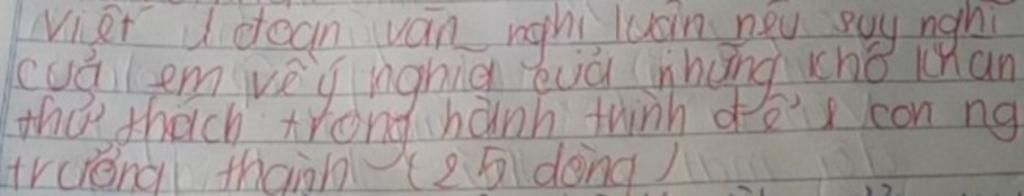 Viết 1 đoạn văn nghị luận nêu suy nghĩ
của em về ý nghĩa của những khó khăn
thử thách trong hành trình để 1 con ng
trưởng thành (25 dòng)